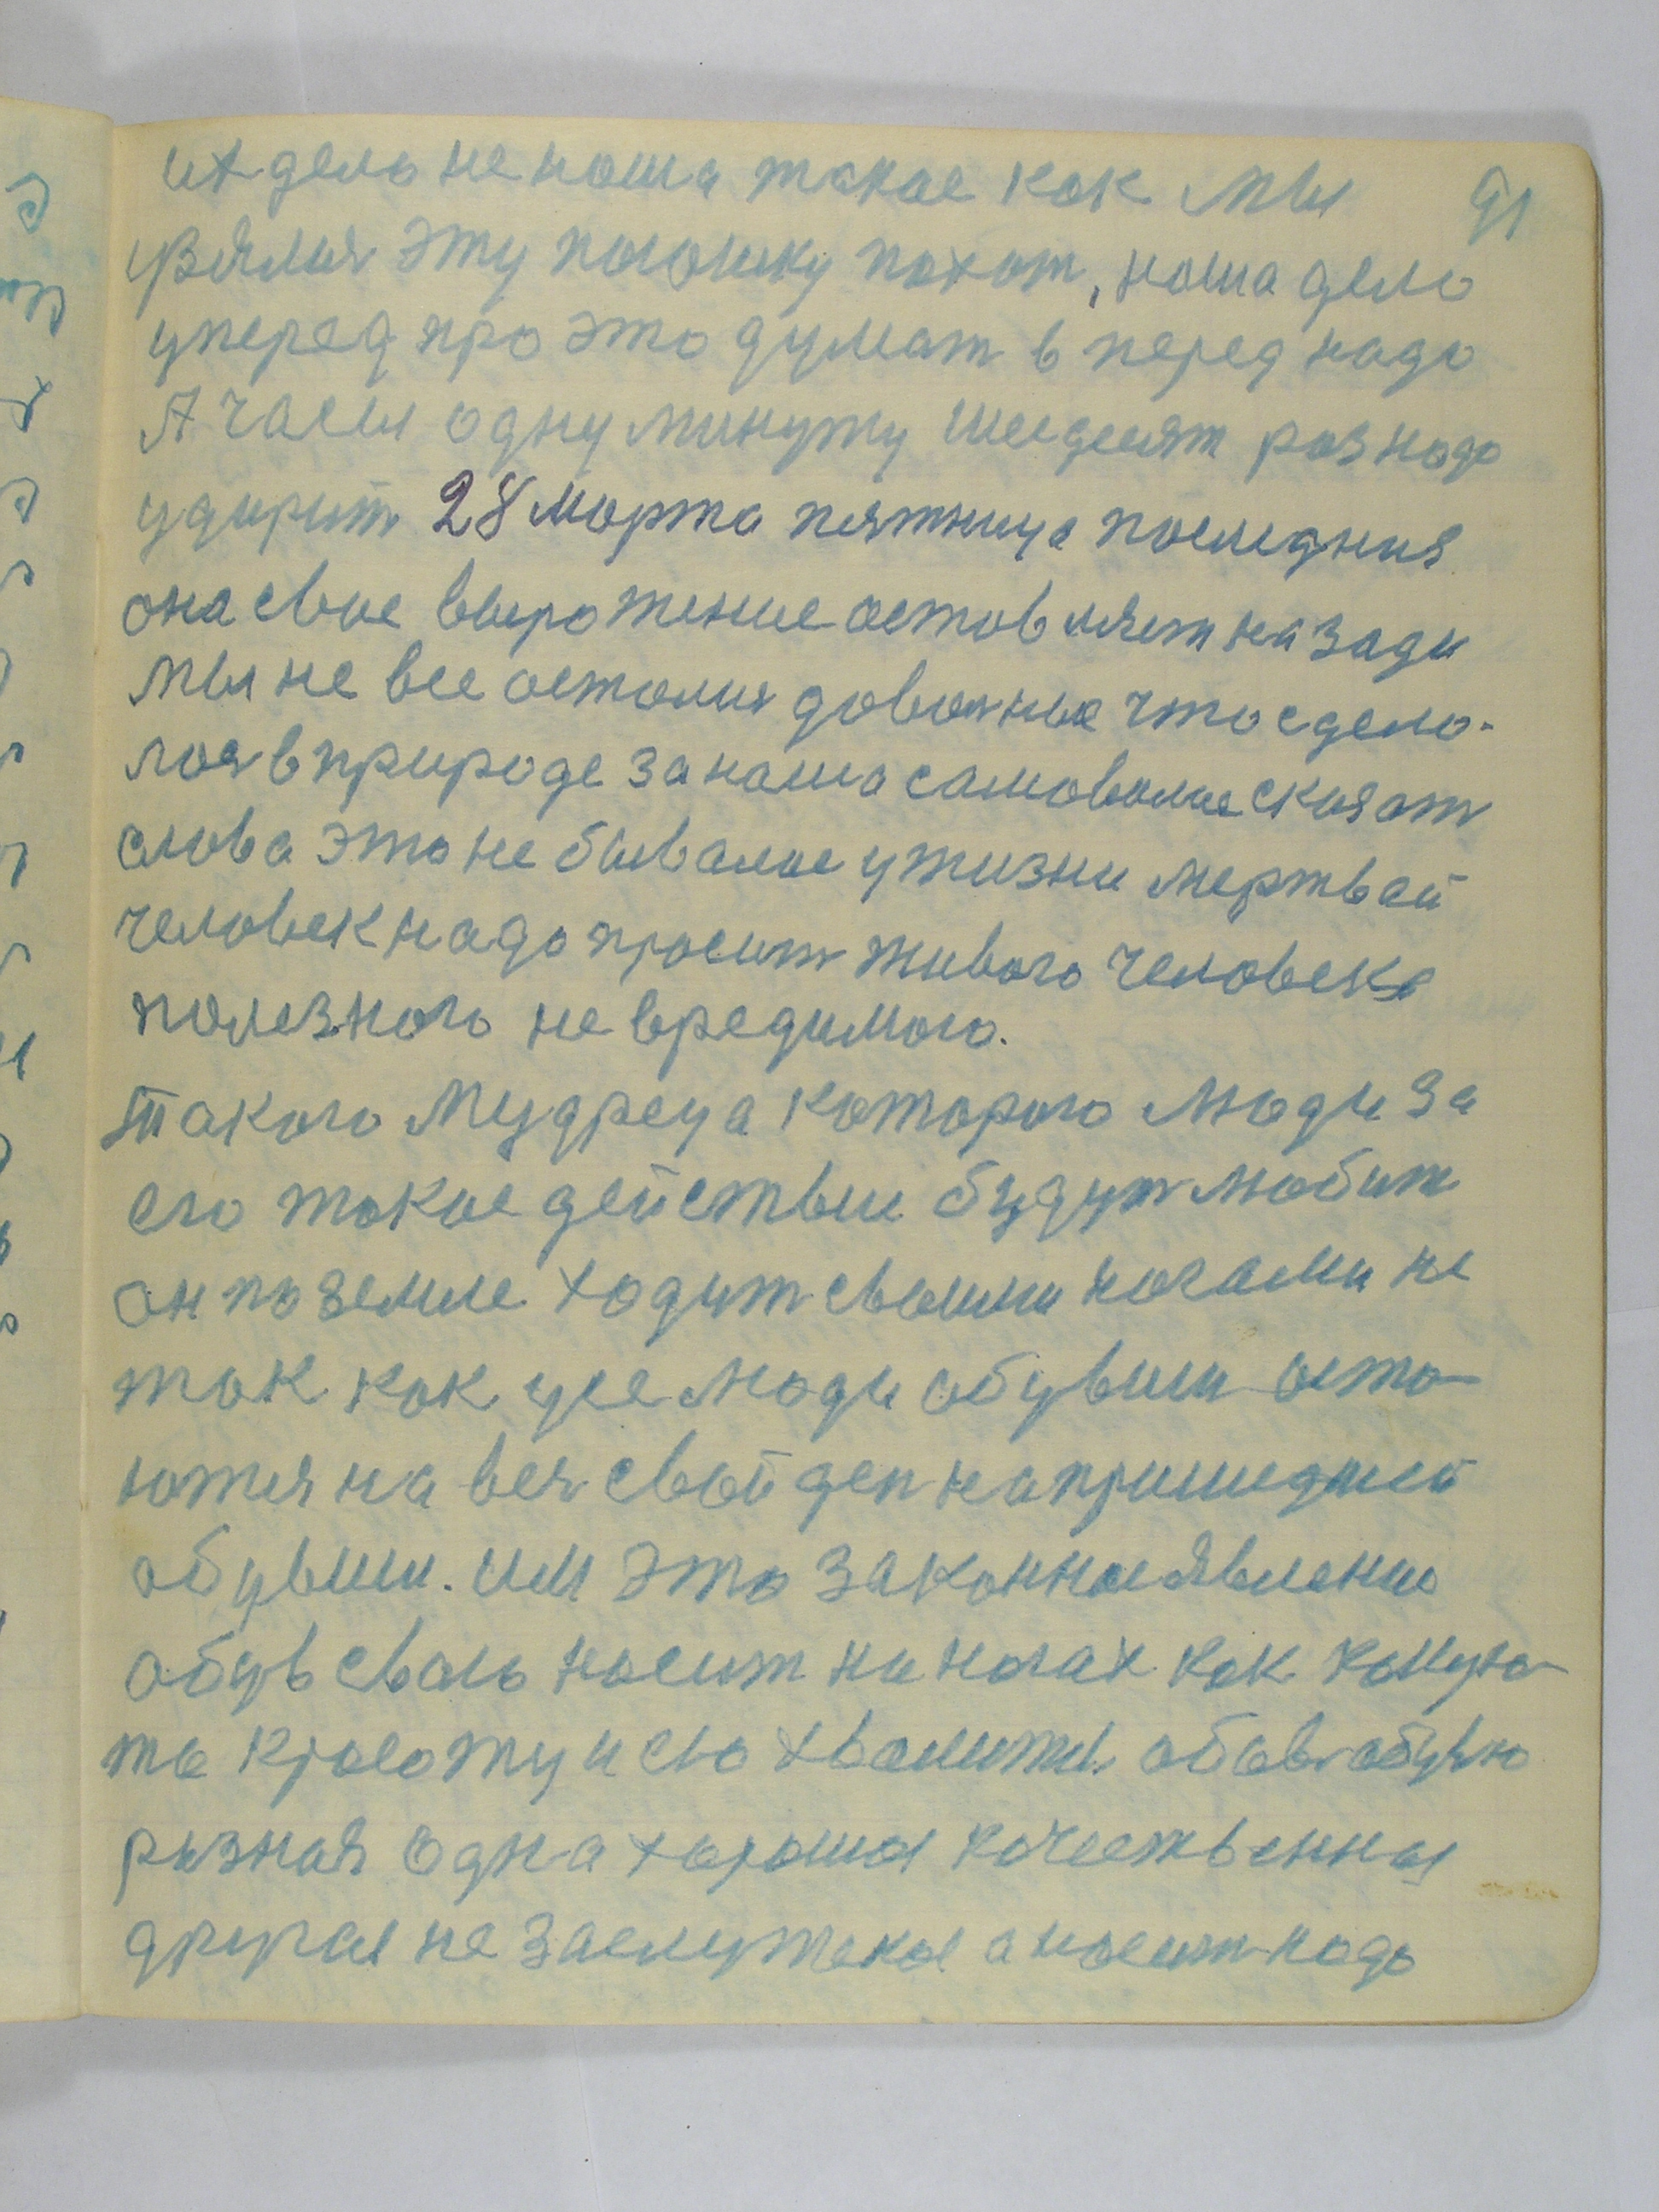 91
их дело не наша такое как мы
увялися эту полоску пахат, наша дело
уперед про это думат в перед надо
А часы одну минуту шесдесят раз надо
ударит 28 марта пятница последняя
она свое выражение оставляет на зади
мы не все осталис доволные что сдела-
лос в природе за наша самоволие сказат
слова это не бывалое у жизни мертвай
человек надо просит живого человека
полезного не вредимого.
такого Мудреца которого люди за
его такое действие будут любит
он по земле ходит своими ногами не
так как усе люди обувши оста-
ются на вес свой ден на пришедшей
обувши. им это законное явление
обув свою носит на ногах как какую-
то красоту и ею хвалится
разная одна хорошая качественная
другая не заслужоная а носит надо